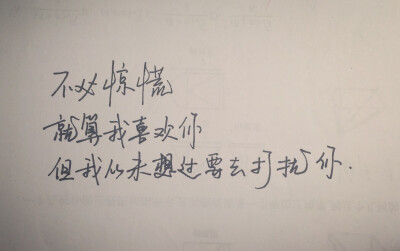 不必惊慌
就算我喜欢你
但我从未想过要去打扰你.